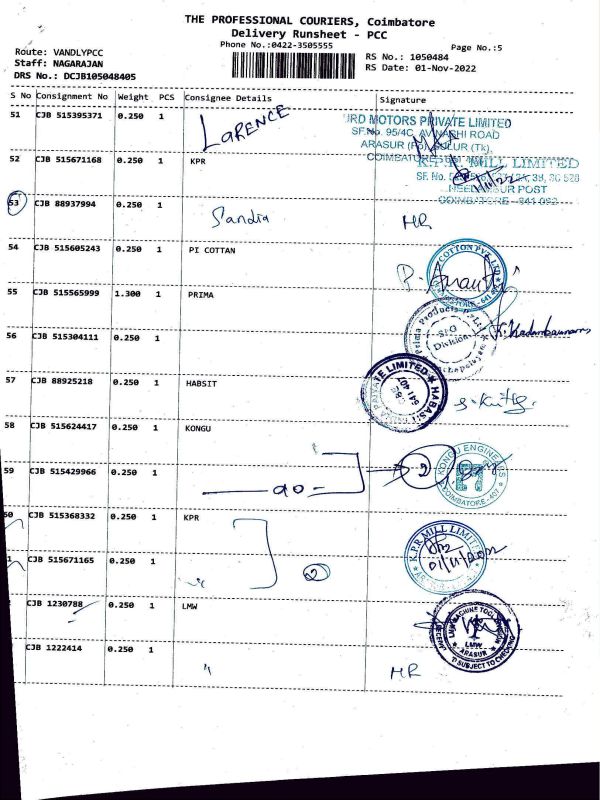 THE PROFESSIONAL COURIERS, Coimbatore
Delivery Runsheet - PCC
Phone No.:0422-3505555
Page No.:5
Route: VANDLYPCC
Staff: NAGARAJAN
DRS No.: DCJB105048405
RS No.: 1050484
RS Date: 01-Nov-2022
S No Consignment No Weight PCS Consignee Details Signature
51 CJB 515395371 0.250 1 LARENCE
MOTORS PRIVATE LIMITED
SF.No. 95/4C, AVINASHI ROAD
ARASUR (Po), SULUR (Tk),
COIMBATORE
52 CJB 515671168 0.250 1 KPR
K.P.R. MILL LIMITED
SF. No.
NEELAMBUR POST
COIMBATORE - 641 062
53 CJB 88937994 0.250 1 Sandia HR
54 CJB 515605243 0.250 1 PI COTTAN
COTTON PVT LTD
P. Ananthi
55 CJB 515565999 1.300 1 PRIMA
Prima Products
SFG
Division
56 CJB 515304111 0.250 1
57 CJB 88925218 0.250 1 HABSIT
PRIVATE LIMITED
641 407
58 CJB 515624417 0.250 1 KONGU
KONGU ENGINEERS
COIMBATORE - 407
59 CJB 515429966 0.250 1 do 2
60 CJB 515368332 0.250 1 KPR
K.P.R. MILL LIMITED
01/11/2022
CJB 515671165 0.250 1 " 2
CJB 1230788 0.250 1 LMW
LMW MACHINE TOOL
LMW
ARASUR
SUBJECT TO CHECKING
CJB 1222414 0.250 1 " HR